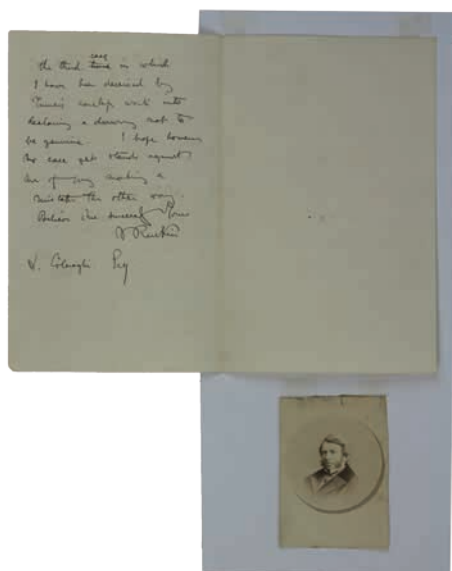 the third case in which
I have been deceived by
Turner's careless work into
declaring a drawing not to
be genuine. I hope however
no case yet stands against
me of my making a
mistake the other way.
Believe me sincerely Yours
J Ruskin
W. Esq